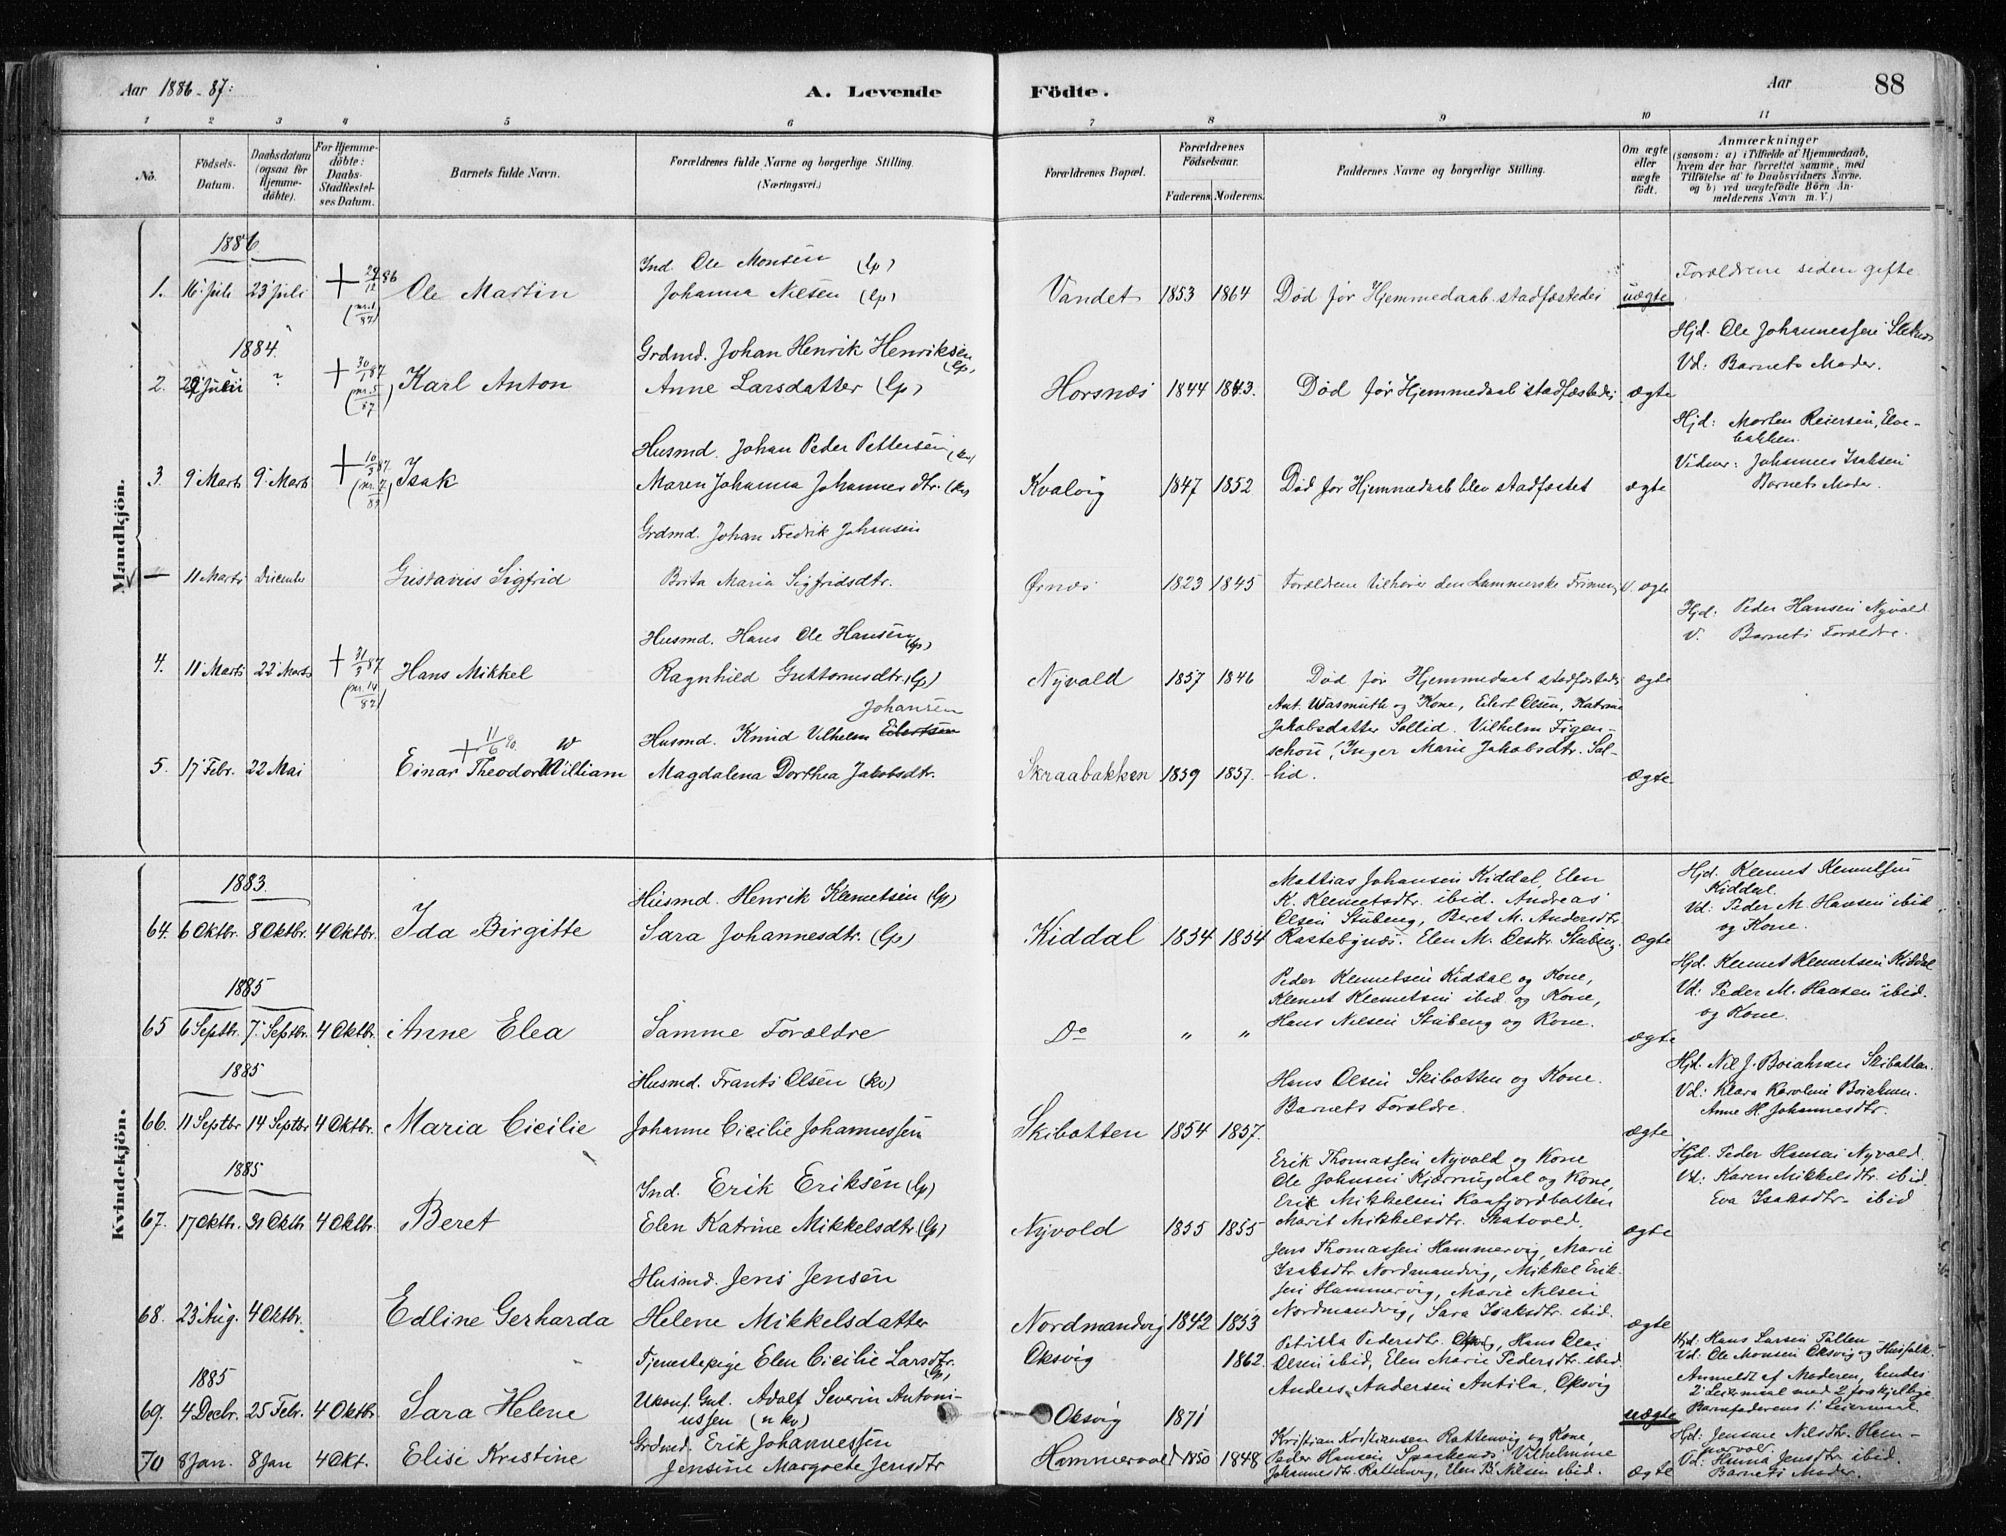 Aar 1886-87:
A. Levende
Födte.
Aar
88
1 2 3 4 5 6 7 8 9 10 11
No.
Födsels-Datum.
Daabsdatum (ogsaa for Hjemme-döbte).
For Hjemme-döbte: Daabs-Stadfæstel-ses Datum.
Barnets fulde Navn.
Forældrenes fulde Navne og borgerlige Stilling. (Næringsvei.)
Forældrenes Bopæl.
Forældrenes Födselsaar.
Faderens. Moderens.
Faddernes Navne og borgerlige Stilling.
Om ægte eller uægte födt.
Anmærkninger
(saasom: a) i Tilfælde af Hjemmedaab,
hvem der har forrettet samme, med
Tilföielse af to Daabsvidners Navne,
og b) ved uægtefödte Börn An-
melderens Navn m. V.)
Mandkjön.
1886
Ind. Ole Monsen (lp)
Forældrene siden gifte
1. 16 Juli 23 Juli + 29/12 86 Ole Martin Johanna Nilsen (lp) Vandet 1853 1864 Död för Hjemmedaab stadfæstedes uægte
(nr. 1/87)
1884.
Grdmd. Johan Henrik Henriksen (lp)
Hjd. Ole Johannessen
Vd: Barnets Moder.
2. Juli ? + 30/1 87 Karl Anton Anne Larsdatter (lp) Horsnæs 1844 1843. Död för Hjemmedaab stadfæstedes ægte
(nr. 5/87)
Husmd. Johan Peder Pettersen (kv)
Hjd: Morten Reiersen, Elve-
bakken.
Vidner: Johannes Isaksen
Barnets Moder.
3 9 Marts 9 Marts + 10/3 87. Isak Maren Johanna Johannesdtr. (kv) Kvalvig 1847 1852 Död for Hjemmedaab blev stadfæstet ægte
Grdmd. Johan Fredrik Johansen
11 Marts December Gustavus Sigfrid Brita Maria Sigfridsdtr. Örnes 1823 1845 Forældrene tilhører den Lammerske Frimenigh. ægte
Husmd. Hans Ole Hansen (lp)
Hjd: Peder Hansen Nyvold
V. Barnets Forældre.
4. 11 Marts 22 Marts + 31/3 87 Hans Mikkel Ragnhild Guttormsdtr. (lp) Nyvold 1857 1846 Död för Hjemmedaab stadfæstedes ægte
(nr. 14/87)
Johansen
Husmd. Knud Vilhelm Eilertsen
Ant. Wasmuth og Kone, Eilert Olsen, Katrina
Jakobsdatter Sollid. Vilhelm Figen-
schou, Inger Marie Jakobsdtr. Sol-
+ 11/6 90. W
5. 17 Febr. 22 Mai Einar Theodor William Magdalena Dorthea Jakobsdtr. Skraabakken 1859 1857. -lid. ægte
Kvindekjön.
1883.
Husmd. Henrik Klemetsen (lp)
Mattias Johansen Kiddal, Elen
K. Klemetsdtr. ibid. Andreas
Olsen Stubeng, Beret M. Andersdtr
Hjd. Klemet Klemetsen
Kiddal.
Vd: Peder M. Hansen ibid
og Kone.
64. 6 Oktbr. 8 Oktbr. 4 Oktbr. Ida Birgitte Sara Johannesdtr. (lp) Kiddal 1854 1854 Rastebynæs. Elen M. Olsdtr. Stubeng. ægte
1885
Peder Klemetsen Kiddal og Kone,
Klemet Klemetsen ibid og Kone,
Hans Nilsen Stubeng og Kone.
Hjd. Klemet Klemetsen Kiddal
Vd: Peder M. Hansen ibid.
og Kone.
65 6 Septbr. 7 Septbr. 4 Oktbr. Anne Elea Samme Forældre Do " " ægte
1885
Husmd. Frants Olsen (kv)
Hans Olsen Skibotten og Kone.
Barnets Forældre.
Hjd. Nil J. Skibotten.
Vd: Klara Karoline
Anne H. Johannesdtr.
66. 11 Septbr 14 Septbr 4 Oktbr. Maria Cicilie Johanne Cicilie Johannessen Skibotten 1854 1857. ægte
1885
Ind. Erik Eriksen (lp)
Erik Thomassen Nyvold og Kone
Ole Johnsen Kjærringdal og Kone,
Erik Mikkelsen Kaafjordbotten
Marit Mikkelsdtr. Skatvold.
Hjd. Peder Hansen Nyvold.
Vd: Karen Mikkelsdtr. ibid.
Eva Isaksdtr. ibid
67. 17 Oktbr. 31 Oktbr 4 Oktbr. Beret Elen Katrine Mikkelsdtr (lp) Nyvold 1855 1855 ægte
Husmd. Jens Jensen
Jens Thomassen Hammervig, Marie
Isaksdtr. Nordmandvig, Mikkel Erik-
sen Hammervig, Marie Nilsen
Nordmandvig, Sara Isaksdtr. ibid.
68. 23 Aug. 4 Oktbr. Edline Gerharda Helene Mikkelsdatter Nordmandvig 1842 1853 ægte
1885
Tjenestepige Elen Cicilie Larsdtr. (lp) Oksvig 1862.
Petrikka Pedersdtr. Hans Ole
Olsen ibid, Elen Marie Pedersdtr. ibid
Anders Andersen Antila, Oksvig
Hjd: Hans Larsen Falten
Vd: Ole Monsen Oksvig og Husfolk.
Anmeldt af Moderen, hendes
2' Leiermaal med 2 forskjellige
Barnefaderens 1' Leiermaal.
69. 4 Decbr. 25 Febr. 4 Oktbr Sara Helene Ukonf. Gut. Adolf Severin Antoni-
ussen (n kv) Oksvig 1871 uægte
Grdmd. Erik Johannessen
Kristian Kristiansen Rattenvig og Kone,
Peder Hansen Vilhelmine
Johannesdtr. Rattenvig, Elen B. Nilsen ibid.
Hjd: Jensine Nilsdtr. Ham-
mervold.
Vd: Hanna Jensdtr ibid.
Barnets Moder.
70 8 Jan. 8 Jan 4 Okt. Elise Kristine Jensine Margrete Jensdtr Hammervold 1850 1848 ægte